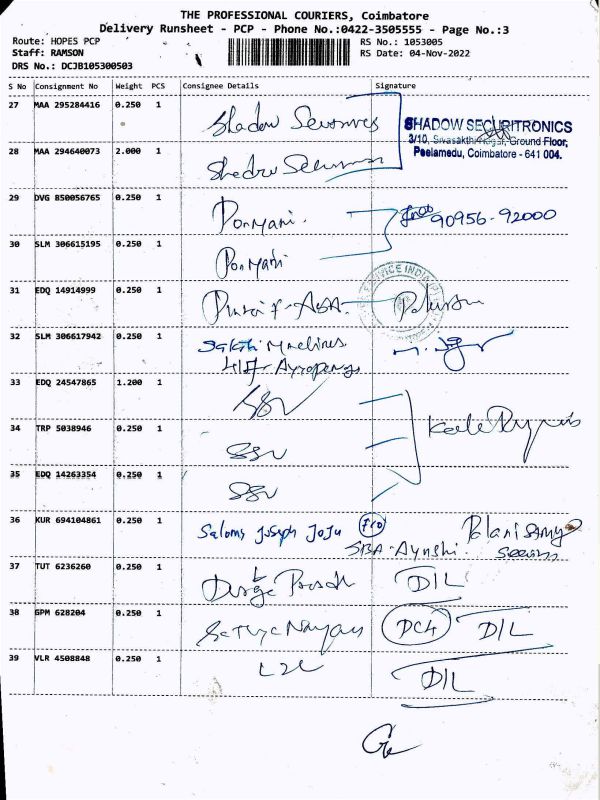 THE PROFESSIONAL COURIERS, Coimbatore
Delivery Runsheet - PCP - Phone No.:0422-3505555 - Page No.:3
Route: HOPES PCP
Staff: RAMSON
DRS No.: DCJB105300503
RS No.: 1053005
RS Date: 04-Nov-2022
S No Consignment No Weight PCS Consignee Details Signature
27 MAA 295284416 0.250 1 Shadow
SHADOW SECURITRONICS
3/10, Sivasakthi Nagar, Ground Floor,
Peelamedu, Coimbatore - 641 004.
28 MAA 294640073 2.000 1
29 DVG 850056765 0.250 1 Ponmani.
90956-92000
30 SLM 306615195 0.250 1 Ponmani
31 EDQ 14914999 0.250 1
32 SLM 306617942 0.250 1 Sakthi Machines
33 EDQ 24547865 1.200 1 SSV
34 TRP 5038946 0.250 1 SSV
35 EDQ 14263354 0.250 1 SSV
36 KUR 694104861 0.250 1 Salomy Joseph Joju
Palanisamy
37 TUT 6236260 0.250 1 D/L
38 GPM 628204 0.250 1 D/L
39 VLR 4508848 0.250 1 L2L
D/L